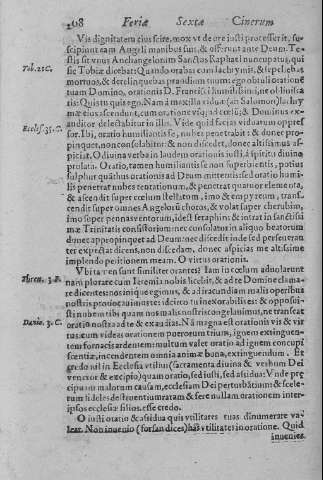 208 Feriæ Sextæ Cinerum
Vis dignitatem eius scire, mox vt de ore iusti processerit, su-
scipiunt eam Angeli manibus suis, & offerunt ante Deum. Te-
stis sit vnus Archangelorum Sanctus Raphael nuncupatus, qui
Tob. 12.C.
sic Tobiæ dicebat: Quando orabas cum lachrymis, & sepeliebas
mortuos, & derelinquebas prandium tuum: ego obtuli orationem
tuam Domino, orationis D. Francisci humillimi, ne obliuisca
ris: Quis tu quis ego. Nam à maxilla viduæ (ait Salomon) lachry
mæ eius ascendunt, cum oratione vsque ad cœlū; & Dominus ex-
auditor delectabitur in illis. Vide quid facias viduarum oppres
Eccles. 35.C.
sor. Ibi, oratio humiliantis se, nubes penetrabit: & donec pro-
pinquet, non consolabitur: & non discedet, donec altissimus asp-
iciat. O diuina verba in laudem orationis iusti, à spiritu diuino
prolata. Oratio, tamen humiliantis se non superbientis, potius
sulphur quàm orationis ad Deum mittentis: sed oratio humi-
lis penetrat nubes tentationum, & penetrat quatuor elementa,
& ascendit super cœlum stellatum, imo & empyreum, transf-
cendit super omnes Angelorū choros, & volat super cherubim,
imo super pennas ventorum, idest seraphin: & intrat in sanctissi
mæ Trinitatis consistorium: nec consolatur in aliquo beatorum
donec appropinquet ad Deum: nec discedit inde sed perseueran
ter expectat dicens, non discedam, donec aspicias me altissime
implendo petitionem meam. O virtus orationis.
Vbi tamen sunt similiter orantes? Iam in cœlum aduolarunt
Thren. 3.F.
nam plorare cum Ieremia nobis licebit, & ad te Domine clama-
re dicentes: nos inique egimus, & ad iracundiam malis operibus
nostris prouocauimus te: idcirco tu inexorabiles: & opposui-
Danie. 3.C.
sti nubem tibi quam nos malis nostris congelauimus, ne transeat
oratio nostra ad te & exaudias. Nā magna est orationis vis & vir
tus: eum videas orationem puerorum trium, ignem extinguen-
tem fornacis ardentem: multum valet oratio ad ignem concupi
scentiæ, incendentem omnia animæ bona, extinguendum. Et
credo nil in Ecclesia vtilius (sacramenta diuina & verbum Dei
veneror & excipio) quam oratio, sed iusti, sed assidua: Vnde præ
cipuam malorum causam, ecclesiam Dei perturbātium & scele-
rum fideles destruentium ratam & fere nullam orationem inter-
ipsos ecclesiæ filios esse credo.
O iusti oratio & assidua quis vtilitates tuas dinumerare va-
leat. Non inuenio (forsan dices) has vtilitates in oratione. Quid
inuenies